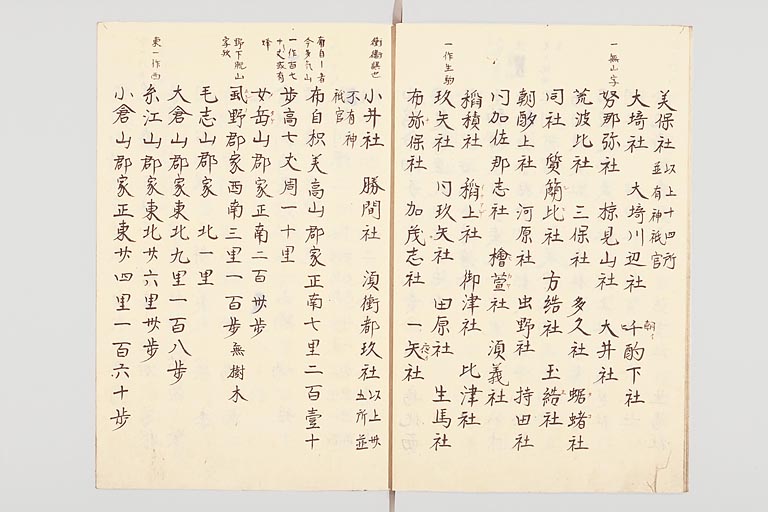 美保社 以上十四所 並有神祇官
大埼社 大埼川辺社 千酌下社
朝々
努那弥社 椋見山社 大井社
一無山字
荒波比社 三保社 多久社 蜛蝫社
同社 質簡比社 方結社 玉結社
朝酌上社 河原社 虫野社 持田社
門加佐那志社 檜萱社 須義社
稲積社 稲上社 御津社 比津社
玖夫社 同玖夫社 田原社 生馬社
一作生駒
布弥保社 加茂志社 一夫社
小井社 勝間社 須衛都玖社 以上 並
不有神祇官
布自枳美高山郡家正南七里二百壹十
歩高七丈周一十里
女岳山郡家正南二百卅歩
虱野郡家西南三里一百歩無樹木
野下脱山字欤
毛志山郡家 北一里
大倉山郡家東北九里一百八歩
糸江山郡家東北廿六里卅歩
東一作西
小倉山郡家正東廿四里一百六十歩